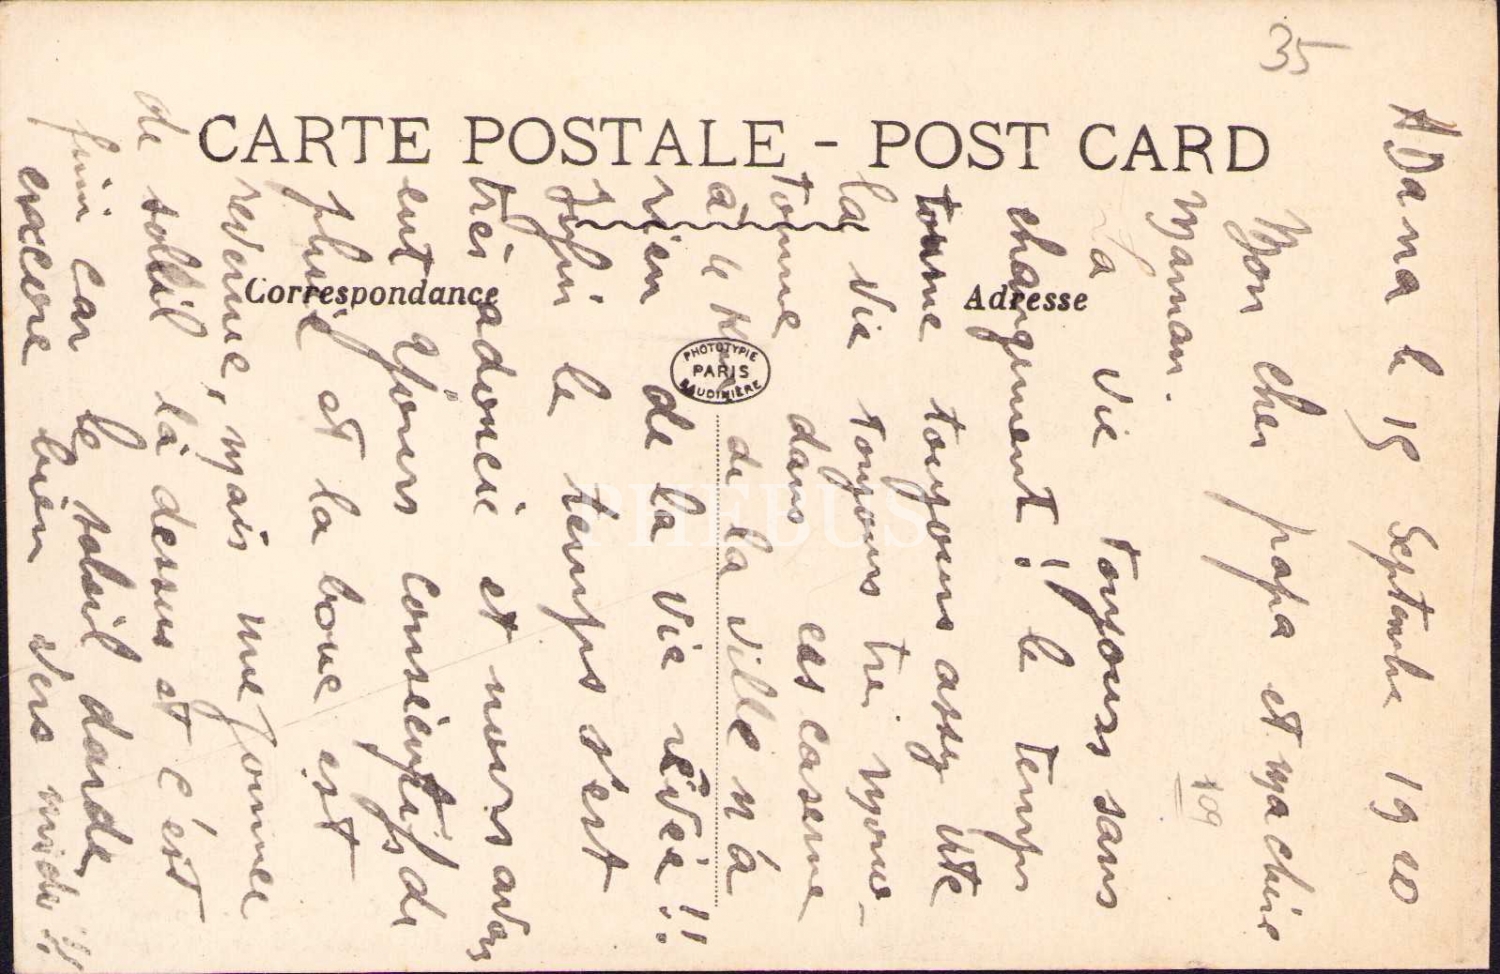 35
CARTE POSTALE - POST CARD
Correspondance
Adresse
PHOTOTYPIE
PARIS
BAUDINIÈRE
PHEBUS
109
ADana le 15 Septembre 1920
Mon cher papa et ma chère
Maman.
La vie toujours sans
changement ! le temps
tourne toujours assez vite
la vie toujours très mono-
tonne dans ces caserne
à 4 K de la ville n'a
rien de la vie rêvée !!
le temps s'est
très adoucie et nous avons
eut 4 jours consécutifs de
pluie et la boue est
revenue, mais une journée
de solleil là dessus et c'est
fini car le soleil darde
encore bien vers midi !!